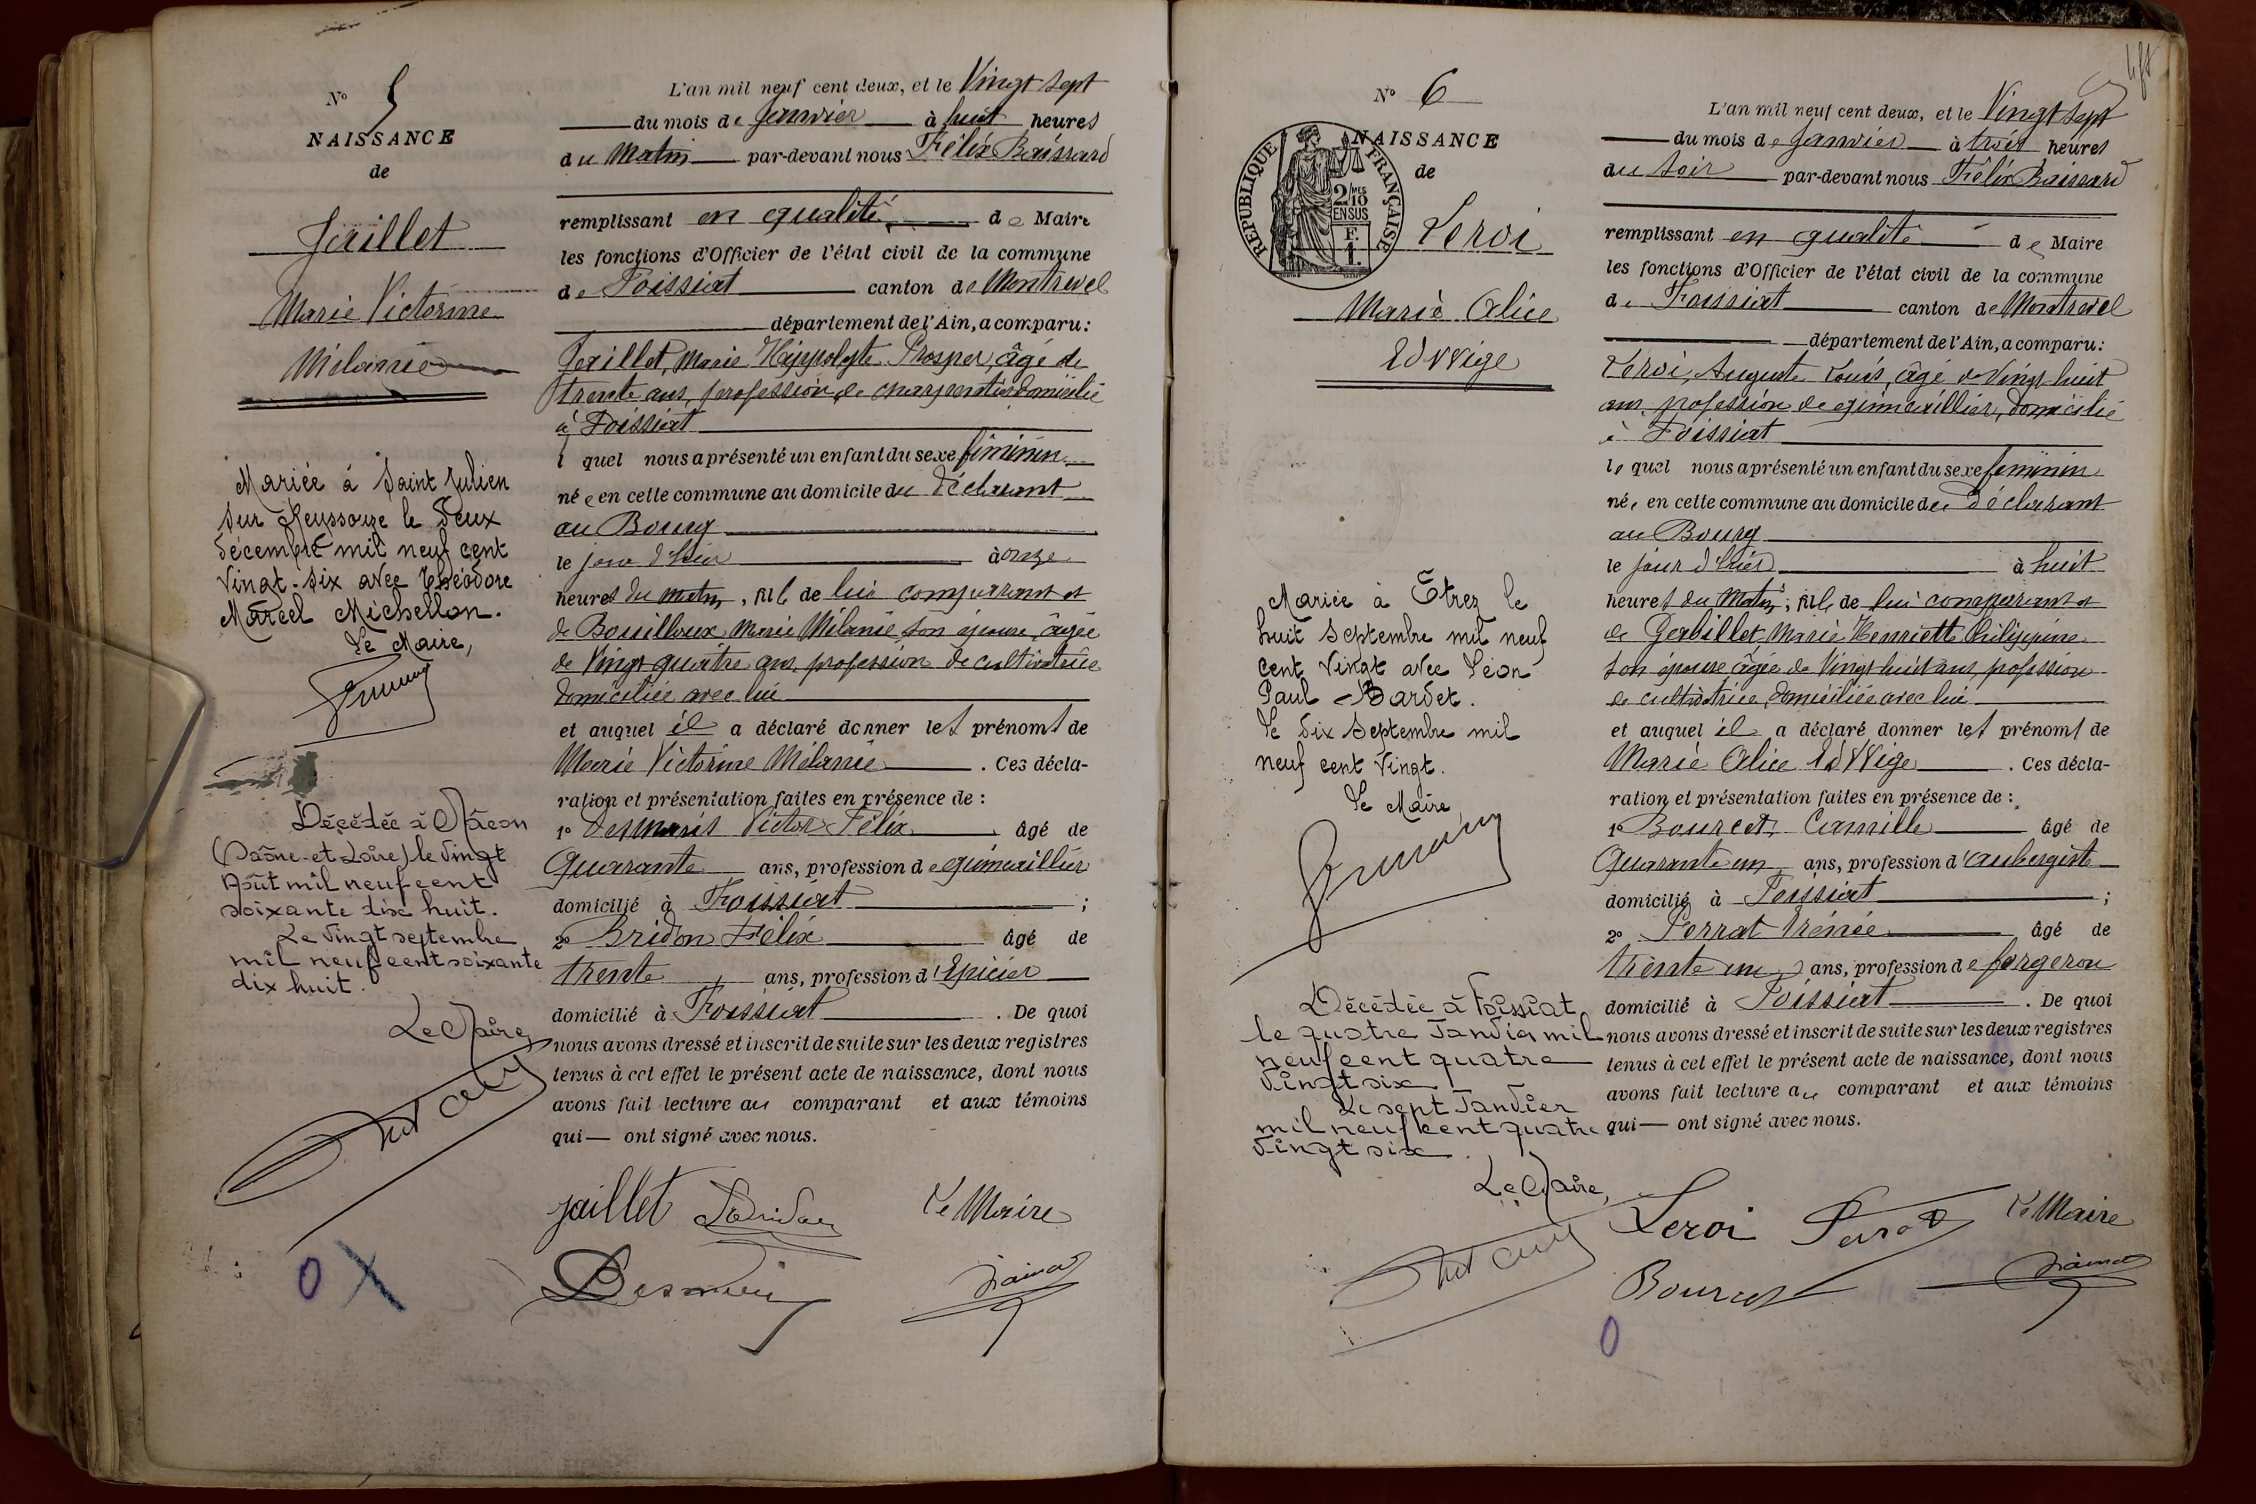 N° 5
NAISSANCE
de
Jaillet
Marie Victorine
Mélanie
Mariée à Saint Julien
sur Reyssouze le deux
décembre mil neuf cent
vingt-six avec Théodore
Marcel Michellon.
Le Maire,
Décédée à Mâcon
(Saône-et-Loire) le vingt
Août mil neuf cent
soixante dix huit.
Le vingt septembre
mil neuf cent soixante
dix huit.
Le Maire,
L'an mil neuf cent deux, et le Vingt sept
du mois de Janvier à huit heures
du Matin par-devant nous Félix Baissard
remplissant en qualité de Maire
les fonctions d'Officier de l'état civil de la commune
de Foissiat canton de Montrevel
département de l'Ain, a comparu :
Jaillet, Marie Hippolyte Prosper, âgé de
trente ans, profession de charpentier domicilié
à Foissiat
l quel nous a présenté un enfant du sexe féminin
né e en cette commune au domicile du déclarant
au Bourg
le jour d'hier à onze
heures du matin, fille de lui comparant et
de Bouilloux Marie Mélanie son épouse, âgée
de Vingt quatre ans, profession de cultivatrice
domiciliée avec lui
et auquel il a déclaré donner les prénoms de
Marie Victorine Mélanie . Ces décla-
ration et présentation faites en présence de :
1° Desmaris Victor Félix, âgé de
Quarante ans, profession de quincaillier
domicilié à Foissiat ;
2° Bridon Félix âgé de
trente ans, profession d'Epicier
domicilié à Foissiat . De quoi
nous avons dressé et inscrit de suite sur les deux registres
tenus à cet effet le présent acte de naissance, dont nous
avons fait lecture au comparant et aux témoins
qui — ont signé avec nous.
jaillet Bridon Le Maire
Desmaris
O X
N° 6
NAISSANCE
de
RÉPUBLIQUE FRANÇAISE
2/10MES
EN SUS
F.
1.
Leroi
Marie Alice
Edwige
Mariée à Etrez le
huit septembre mil neuf
cent vingt avec Léon
Paul Bardet.
Le dix septembre mil
neuf cent vingt.
Le Maire
Décédée à Foissiat
le quatre Janvier mil
neuf cent quatre
vingt six
Le sept Janvier
mil neuf cent quatre
vingt six.
Le Maire,
L'an mil neuf cent deux, et le Vingt sept
du mois de Janvier à trois heures
du soir par-devant nous Félix Baissard
remplissant en qualité de Maire
les fonctions d'Officier de l'état civil de la commune
de Foissiat canton de Montrevel
département de l'Ain, a comparu :
Leroi, Auguste Louis, âgé de Vingt huit
ans, profession de quincaillier, domicilié
à Foissiat
le quel nous a présenté un enfant du sexe féminin
née en cette commune au domicile du déclarant
au Bourg
le jour d'hier à huit
heures du Matin, fille de lui comparant et
de Gerbillet Marie Henriette Philippine
son épouse âgée de Vingt huit ans, profession
de cultivatrice, domiciliée avec lui
et auquel il a déclaré donner les prénoms de
Marie Alice Edwige . Ces décla-
ration et présentation faites en présence de :
1° Bourcet, Camille âgé de
Quarante un ans, profession d'aubergiste
domicilié à Foissiat ;
2° Perrat Irénée âgé de
trente un ans, profession de forgeron
domicilié à Foissiat . De quoi
nous avons dressé et inscrit de suite sur les deux registres
tenus à cet effet le présent acte de naissance, dont nous
avons fait lecture au comparant et aux témoins
qui — ont signé avec nous.
Leroi Perrat Le Maire
Bourcet
O